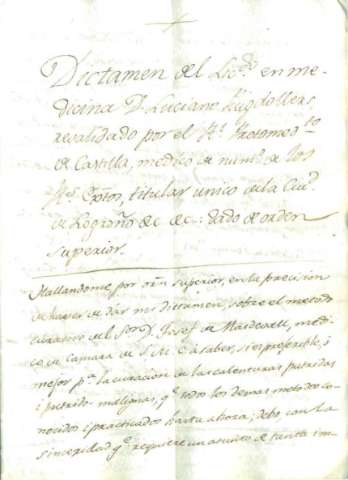 Dictamen del Lic.do en me-
dicina D. Luciano Puigdollers,
revalidado por el R.l Protomed.to
de Castilla, medico de num.o de los
R.s Exttos, titular unico de la Ciud.
de Logroño &c &c: dado de orden
superior.
Hallandome por orn superior, en la precision
de haver de dár mi dictamen, sobre el metodo
curativo del S.or D. Josef de Masdevall, medi-
co de Camara de S. M. C. à saber, si es preferible, i
mejor p.a la curacion de las calenturas putridas
i putrido-malignas, q.e todos los demas metodos co-
nocidos i practicados hasta ahora; debo con la
sinceridad q.e requiere un asunto de tanta im-